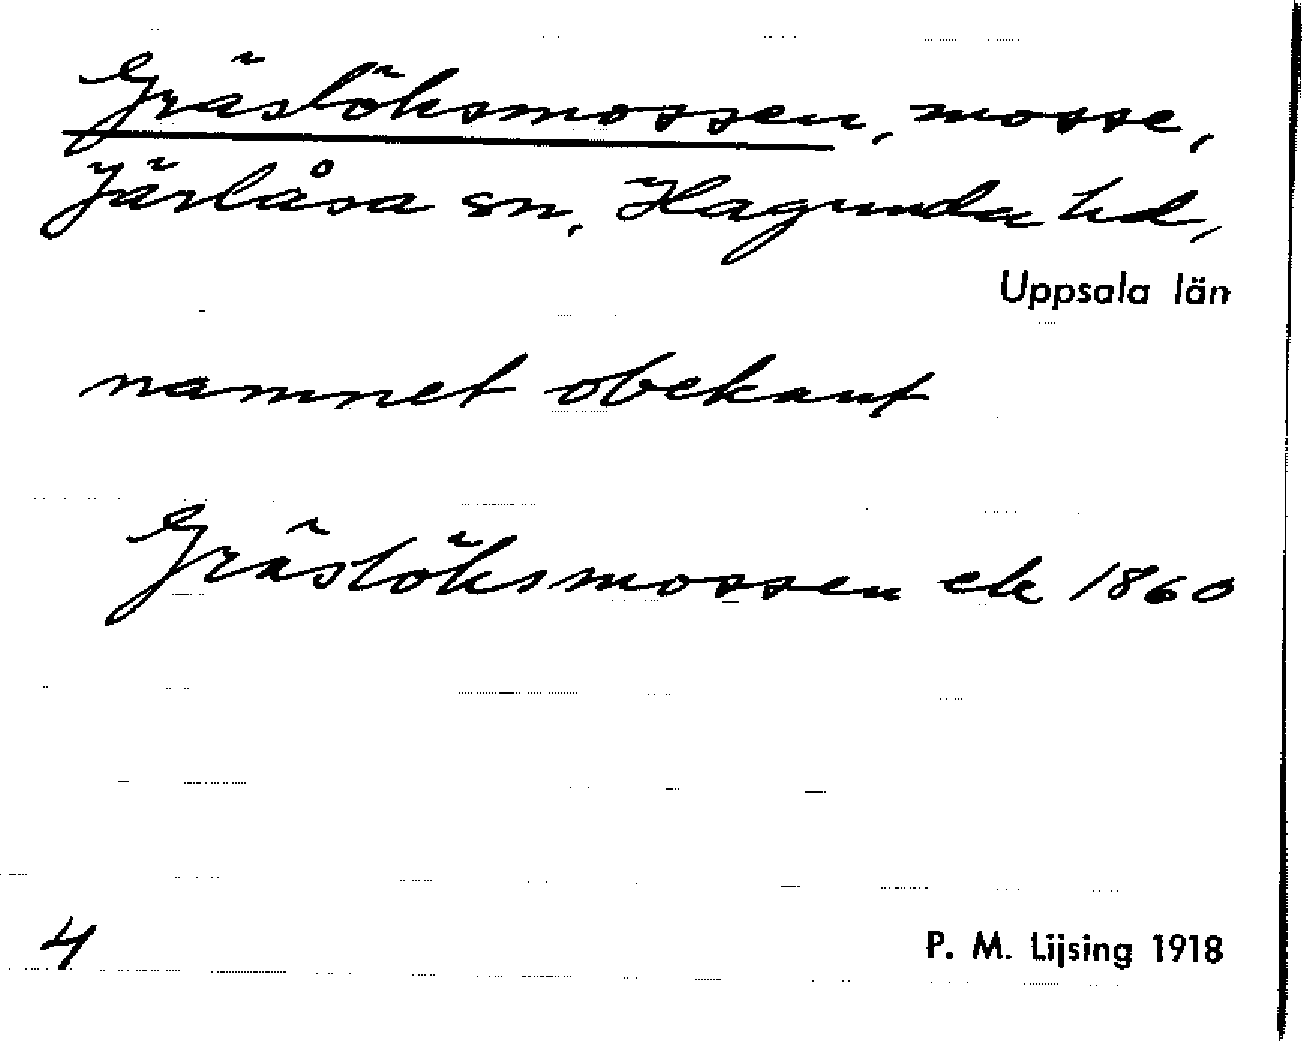 Gräslöksmossen, mosse,
Järlåsa sn, Hagunda hd,
Uppsala län
namnet obekant
Gräslöksmossen ek 1860
4
P. M. Lijsing 1918